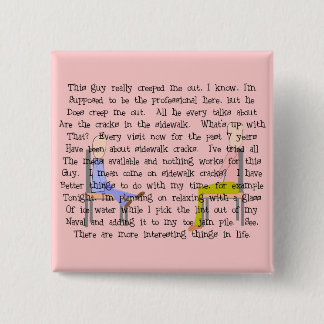 This guy really creeped me out. I know, I'm
Supposed to be the professional here, but he
Does creep me out. All he every talks about
Are the cracks in the sidewalk. What's up with
That? Every visit now for the past 7 years
Have been about sidewalk cracks. I've tried all
The meds available and nothing works for this
Guy. I mean come on sidewalk cracks? I have
Better things to do with my time, for example
Tonight, I'm planning on relaxing with a glass
Of ice water while I pick the lint out of my
Naval and adding it to my toe jam pile. See,
There are more interesting things in life.